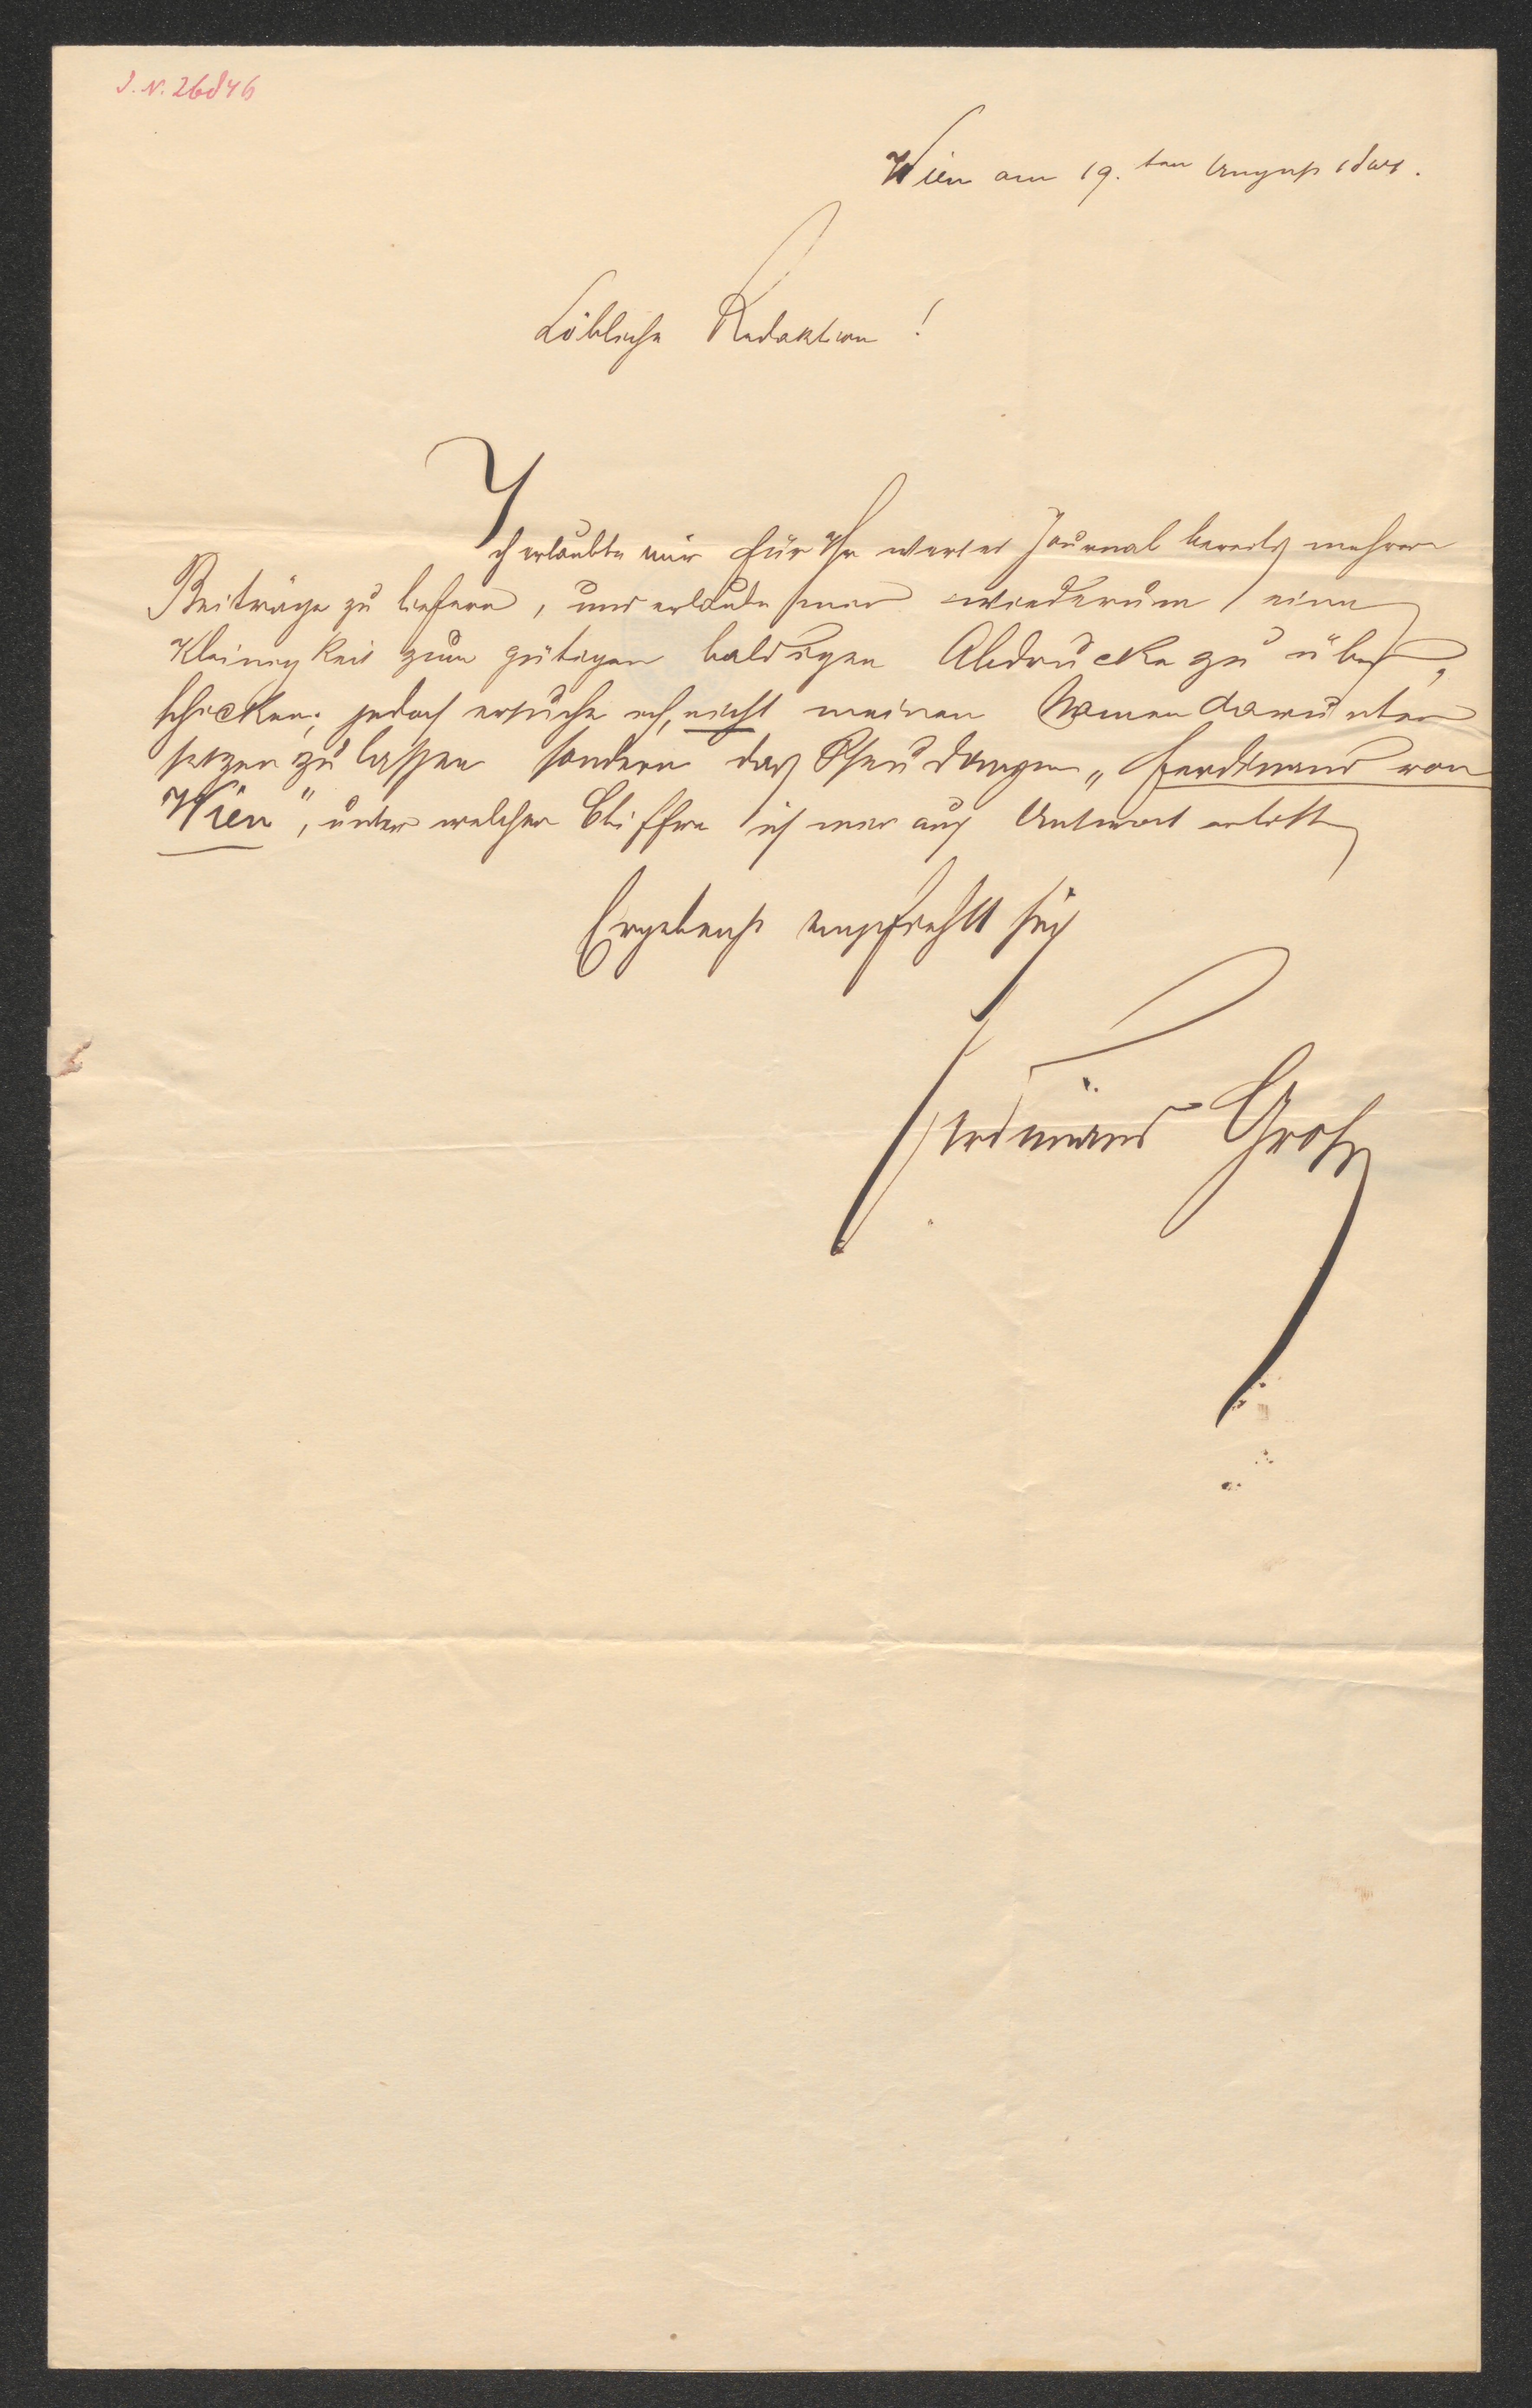 I. N. 26846
Wien am 19. ten August
Löbliche Redaktion!
Ich erlaubte mir für Ihr wertes Journal bereits mehrere
Beiträge zu liefern, und erlaube mir wiederum eine
Kleinigkeit zum gütigen baldigen Abdrucke zu über-
schicken; jedoch ersuche ich, nicht meinen Namen darunter
setzen zu lassen sondern das Pseudonym „Ferdinand von
Wien", unter welcher Chiffre ich mir auch Antwort erbitte
Ergebenst empfiehlt sich
Ferdinand Groß